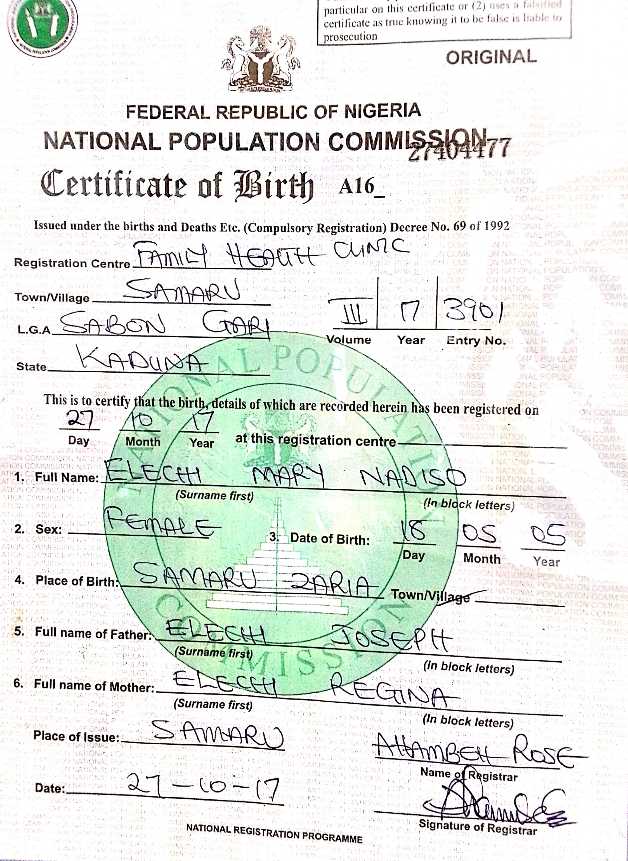 particular on this certificate or (2) uses a falsified
certificate as true knowing it to be false is liable to
prosecution
ORIGINAL
FEDERAL REPUBLIC OF NIGERIA
NATIONAL POPULATION COMMISSION
27404477
Certificate of Birth A16_
Issued under the births and Deaths Etc. (Compulsory Registration) Decree No. 69 of 1992
Registration Centre FAMILY HEALTH CLINIC
Town/Village SAMARU
L.G.A SABON GARI
III 17 3901
Volume Year Entry No.
State KADUNA
This is to certify that the birth, details of which are recorded herein has been registered on
27 10 17
Day Month Year at this registration centre
1. Full Name: ELECHI MARY NADISO
(Surname first) (In block letters)
2. Sex: FEMALE 3. Date of Birth: 18 05 05
Day Month Year
4. Place of Birth: SAMARU ZARIA Town/Village
5. Full name of Father: ELECHI JOSEPH
(Surname first) (In block letters)
6. Full name of Mother: ELECHI REGINA
(Surname first) (In block letters)
Place of Issue: SAMARU ATTAMBEH ROSE
Name of Registrar
Date: 27-10-17
Signature of Registrar
NATIONAL REGISTRATION PROGRAMME
NATIONAL POPULATION COMMISSION